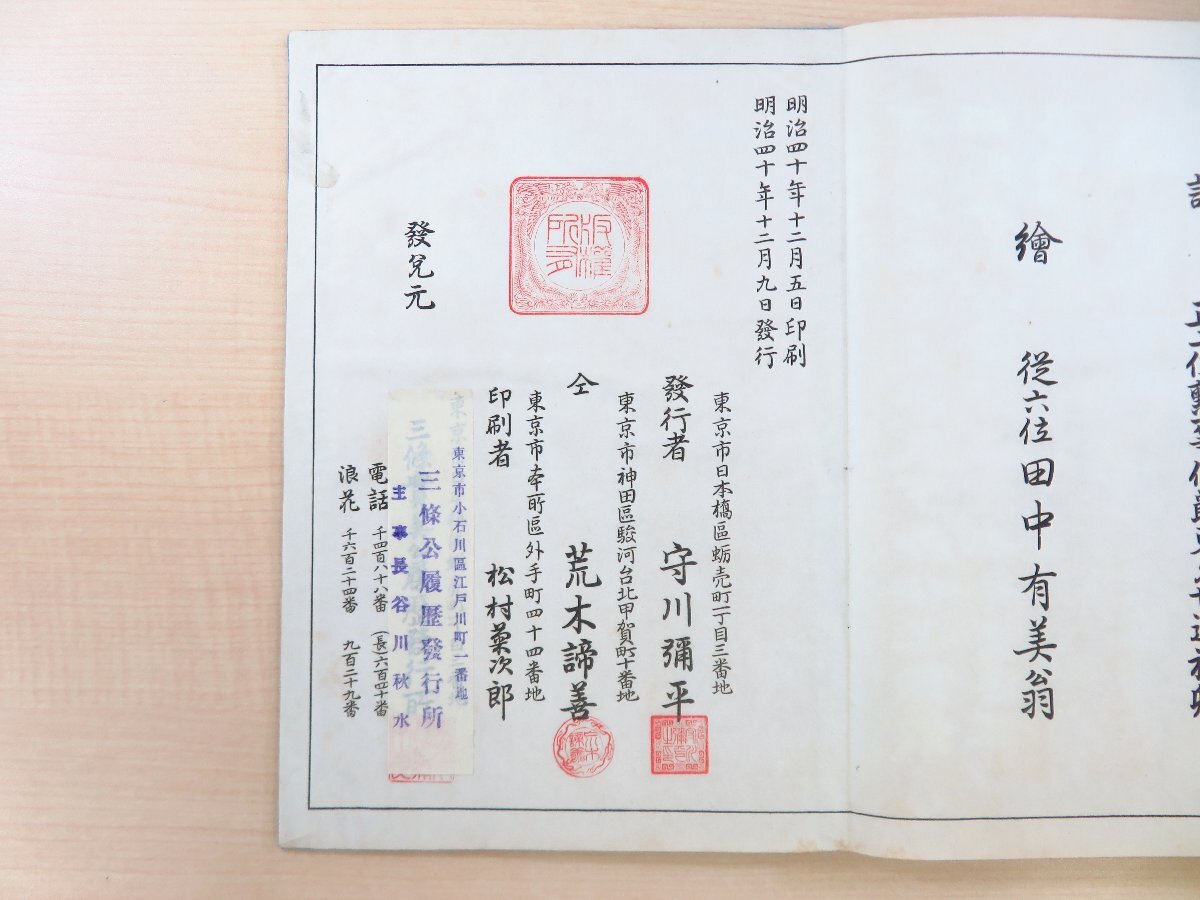 繪　從六位田中有美翁
明治四十年十二月五日印刷
明治四十年十二月九日發行
東京市日本橋區蛎売町一丁目三番地
發行者　守川彌平
東京市神田區駿河台北甲賀町十番地
仝　荒木諦善
東京市本所區外手町四十四番地
印刷者　松村菊次郎
版權所有
發兌元
東京市小石川區江戸川町一番地
三條公履歷發行所
主事長谷川秋水
電話　千四百八十八番　(長)六百四十番
浪花　千六百二十四番　九百二十九番